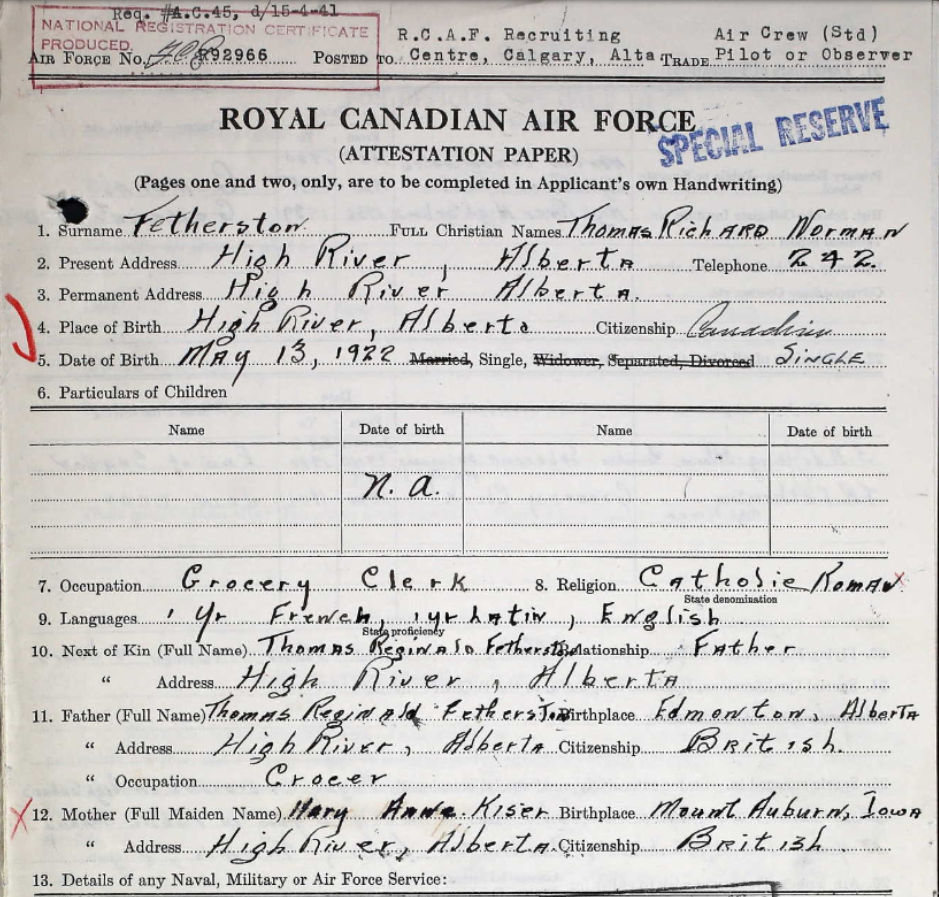 Req. #A.C.45, d/15-4-41
NATIONAL REGISTRATION CERTIFICATE
PRODUCED.
R.C.A.F. Recruiting Air Crew (Std)
AIR FORCE NO. R92966 POSTED TO Centre, Calgary, Alta TRADE Pilot or Observer
ROYAL CANADIAN AIR FORCE
SPECIAL RESERVE
(ATTESTATION PAPER)
(Pages one and two, only, are to be completed in Applicant's own Handwriting)
1. Surname Fetherston FULL Christian Names Thomas Richard Norman
2. Present Address High River, Alberta Telephone 242.
3. Permanent Address High River Alberta.
4. Place of Birth High River, Alberta Citizenship Canadian
5. Date of Birth May 13, 1922 Married, Single, Widower, Separated, Divorced SINGLE
6. Particulars of Children
Name Date of birth Name Date of birth
N.A.
7. Occupation Grocery Clerk 8. Religion Catholic Roman
State denomination
9. Languages 1 yr French, 1 yr Latin, English
State proficiency
10. Next of Kin (Full Name) Thomas Reginald Fetherston Relationship Father
" Address High River, Alberta
11. Father (Full Name) Thomas Reginald Fetherston Birthplace Edmonton, Alberta
" Address High River, Alberta Citizenship British.
" Occupation Grocer
12. Mother (Full Maiden Name) Mary Anna Kiser Birthplace Mount Auburn, Iowa
" Address High River, Alberta. Citizenship British
13. Details of any Naval, Military or Air Force Service: